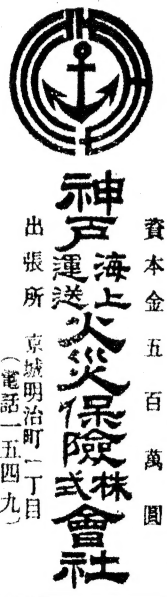 資本金五百萬圓
神戸海上運送火災保險株式會社
出張所 京城明治町一丁目
(電話一五四九)